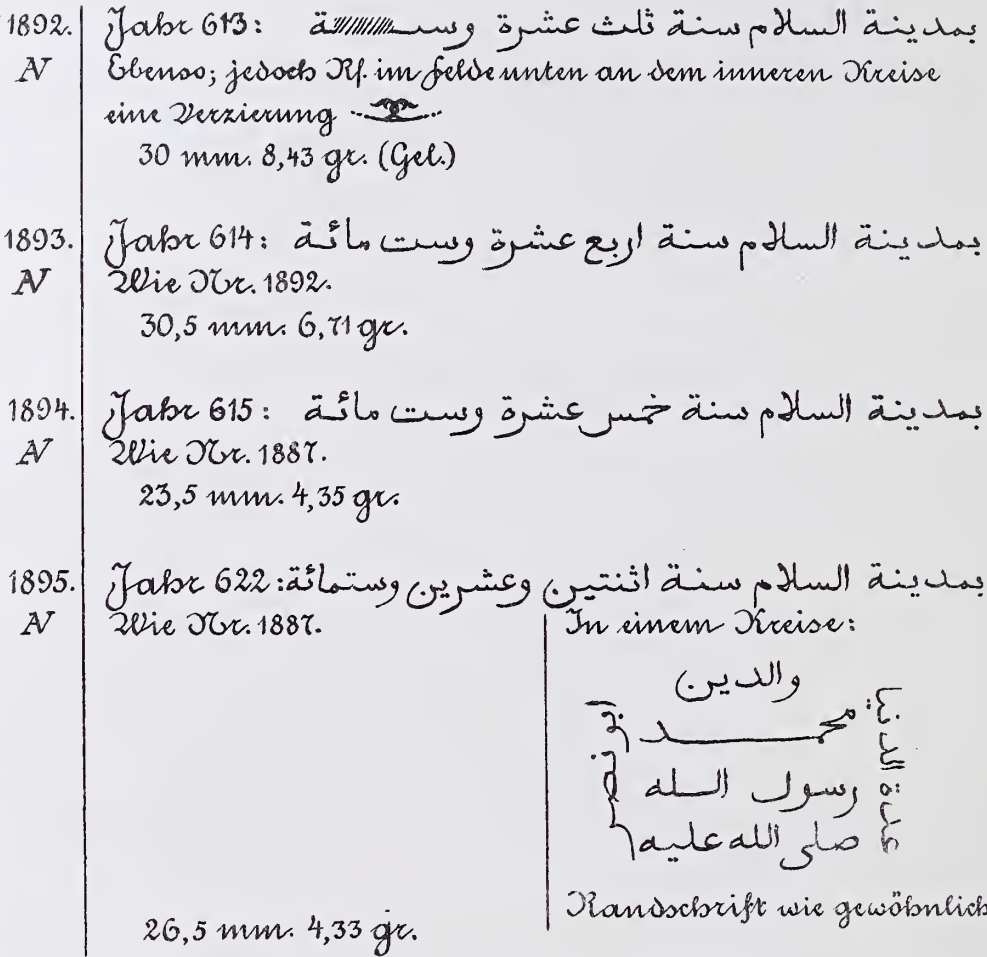 1892. Jahr 613: بمدينة السلام سنة ثلث عشرة وست‍ ‍ة
AV Ebenso; jedoch Rf. im Felde unten an dem inneren Kreise
eine Verzierung
30 mm. 8,43 gr. (Gel.)
1893. Jahr 614: بمدينة السلام سنة اربع عشرة وست مائة
AV Wie Nr. 1892.
30,5 mm. 6,71 gr.
1894. Jahr 615: بمدينة السلام سنة خمس عشرة وست مائة
AV Wie Nr. 1887.
23,5 mm. 4,35 gr.
1895. Jahr 622: بمدينة السلام سنة اثنتين وعشرين وستمائة
AV Wie Nr. 1887.
In einem Kreise:
والدين
محمد
رسول الله
صلى الله عليه
عدة الدنيا
ابو نصر
Randschrift wie gewöhnlich
26,5 mm. 4,33 gr.